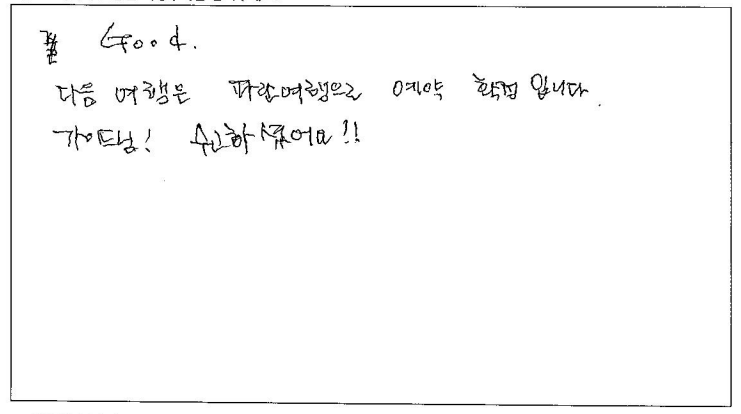 Good.
다음 여행은 파랑여행으로 예약 확정 입니다.
가이드님! 수고하셨어요!!